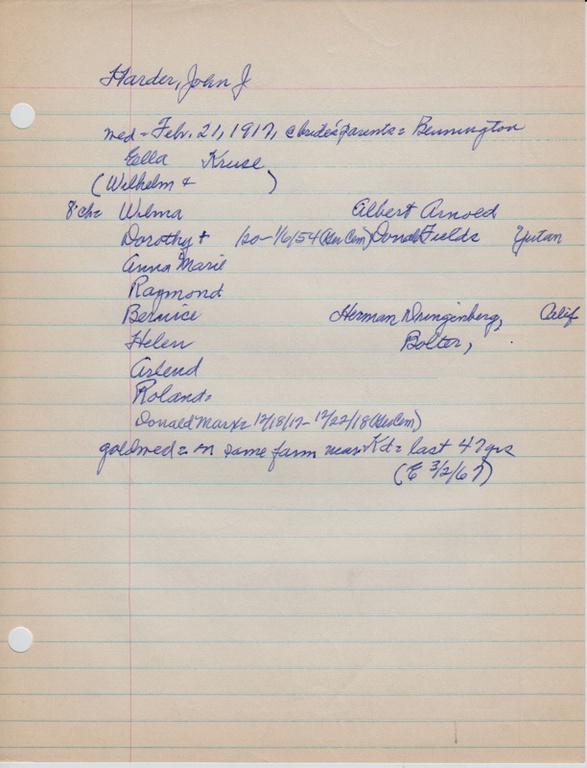 Harder, John J
wed = Feb. 21, 1917, @ bride's parents = Bennington
Ella Kruse
(Wilhelm + )
8 ch = Wilma Albert Arnold
Dorothy + 1/20 - 1/6/54 Donald Fields Yutan
Anna Marie
Raymond
Bernice Herman Calif
Helen Bolter,
Arlend
Roland =
Donald Marx = 12/18/17 - 12/22/18
goldwed = on same farm near Kd = last 47 yrs
(E 3/2/67)